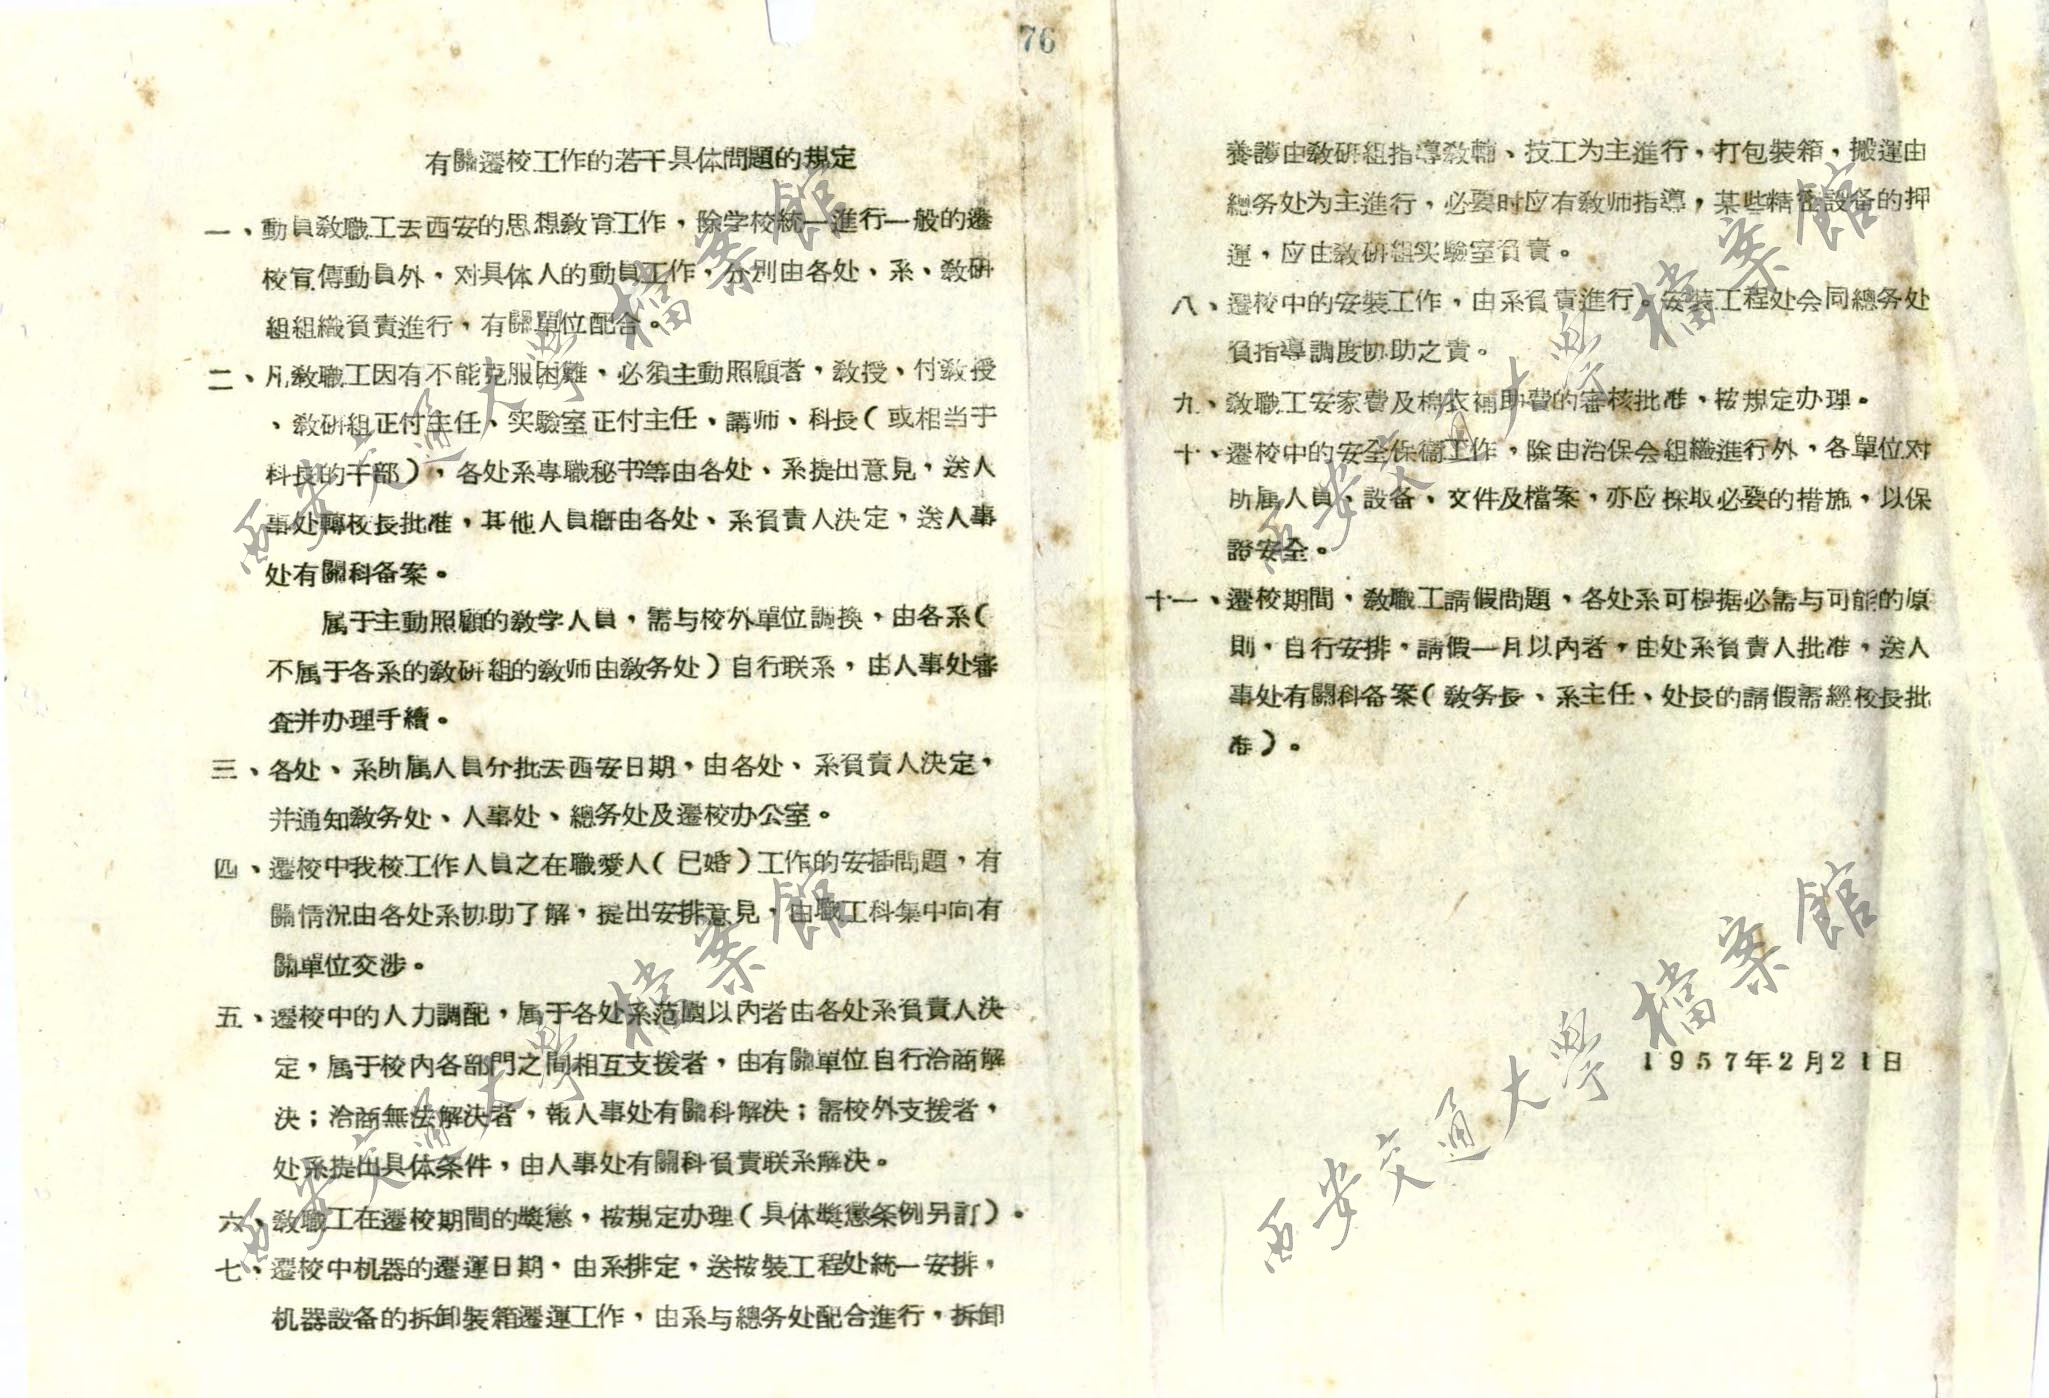 76
有關遷校工作的若干具体問題的規定
一、動員敎職工去西安的思想敎育工作，除学校統一進行一般的遷
校宣傳動員外，对具体人的動員工作，分別由各处、系、敎研
組組織負責進行，有關單位配合。
二、凡敎職工因有不能克服困難、必須主動照顧者，敎授、付敎授
、敎研組正付主任、实驗室正付主任、講师、科長（或相当于
科長的干部），各处系專職秘书等由各处、系提出意見，送人
事处轉校長批准，其他人員槪由各处、系負責人決定，送人事
处有關科备案。
属于主動照顧的敎学人員，需与校外單位調換，由各系（
不属于各系的敎研組的敎师由敎务处）自行联系，由人事处審
查并办理手續。
三、各处、系所属人員分批去西安日期，由各处、系負責人決定，
并通知敎务处、人事处、總务处及遷校办公室。
四、遷校中我校工作人員之在職愛人（已婚）工作的安插問題，有
關情況由各处系协助了解，提出安排意見，由職工科集中向有
關單位交涉。
五、遷校中的人力調配，属于各处系范圍以內者由各处系負責人決
定，属于校內各部門之間相互支援者，由有關單位自行洽商解
決；洽商無法解決者，報人事处有關科解決；需校外支援者，
处系提出具体条件，由人事处有關科負責联系解決。
六、敎職工在遷校期間的獎懲，按規定办理（具体獎懲条例另訂）。
七、遷校中机器的遷運日期，由系排定，送按裝工程处統一安排，
机器設备的拆卸裝箱遷運工作，由系与總务处配合進行，拆卸
養護由敎研組指導敎輔、技工为主進行，打包裝箱，搬運由
總务处为主進行，必要时应有敎师指導，某些精密設备的押
運，应由敎研組实驗室負責。
八、遷校中的安裝工作，由系負責進行。安裝工程处会同總务处
負指導調度协助之責。
九、敎職工安家費及棉衣補助費的審核批准、按規定办理。
十、遷校中的安全保衞工作，除由治保会組織進行外，各單位对
所属人員、設备、文件及檔案，亦应採取必要的措施，以保
證安全。
十一、遷校期間，敎職工請假問題，各处系可根据必需与可能的原
則，自行安排，請假一月以內者，由处系負責人批准，送人
事处有關科备案（敎务長、系主任、处長的請假需經校長批
准）。
1957年2月21日
西安交通大學檔案館
西安交通大學檔案館
西安交通大學檔案館
西安交通大學檔案館